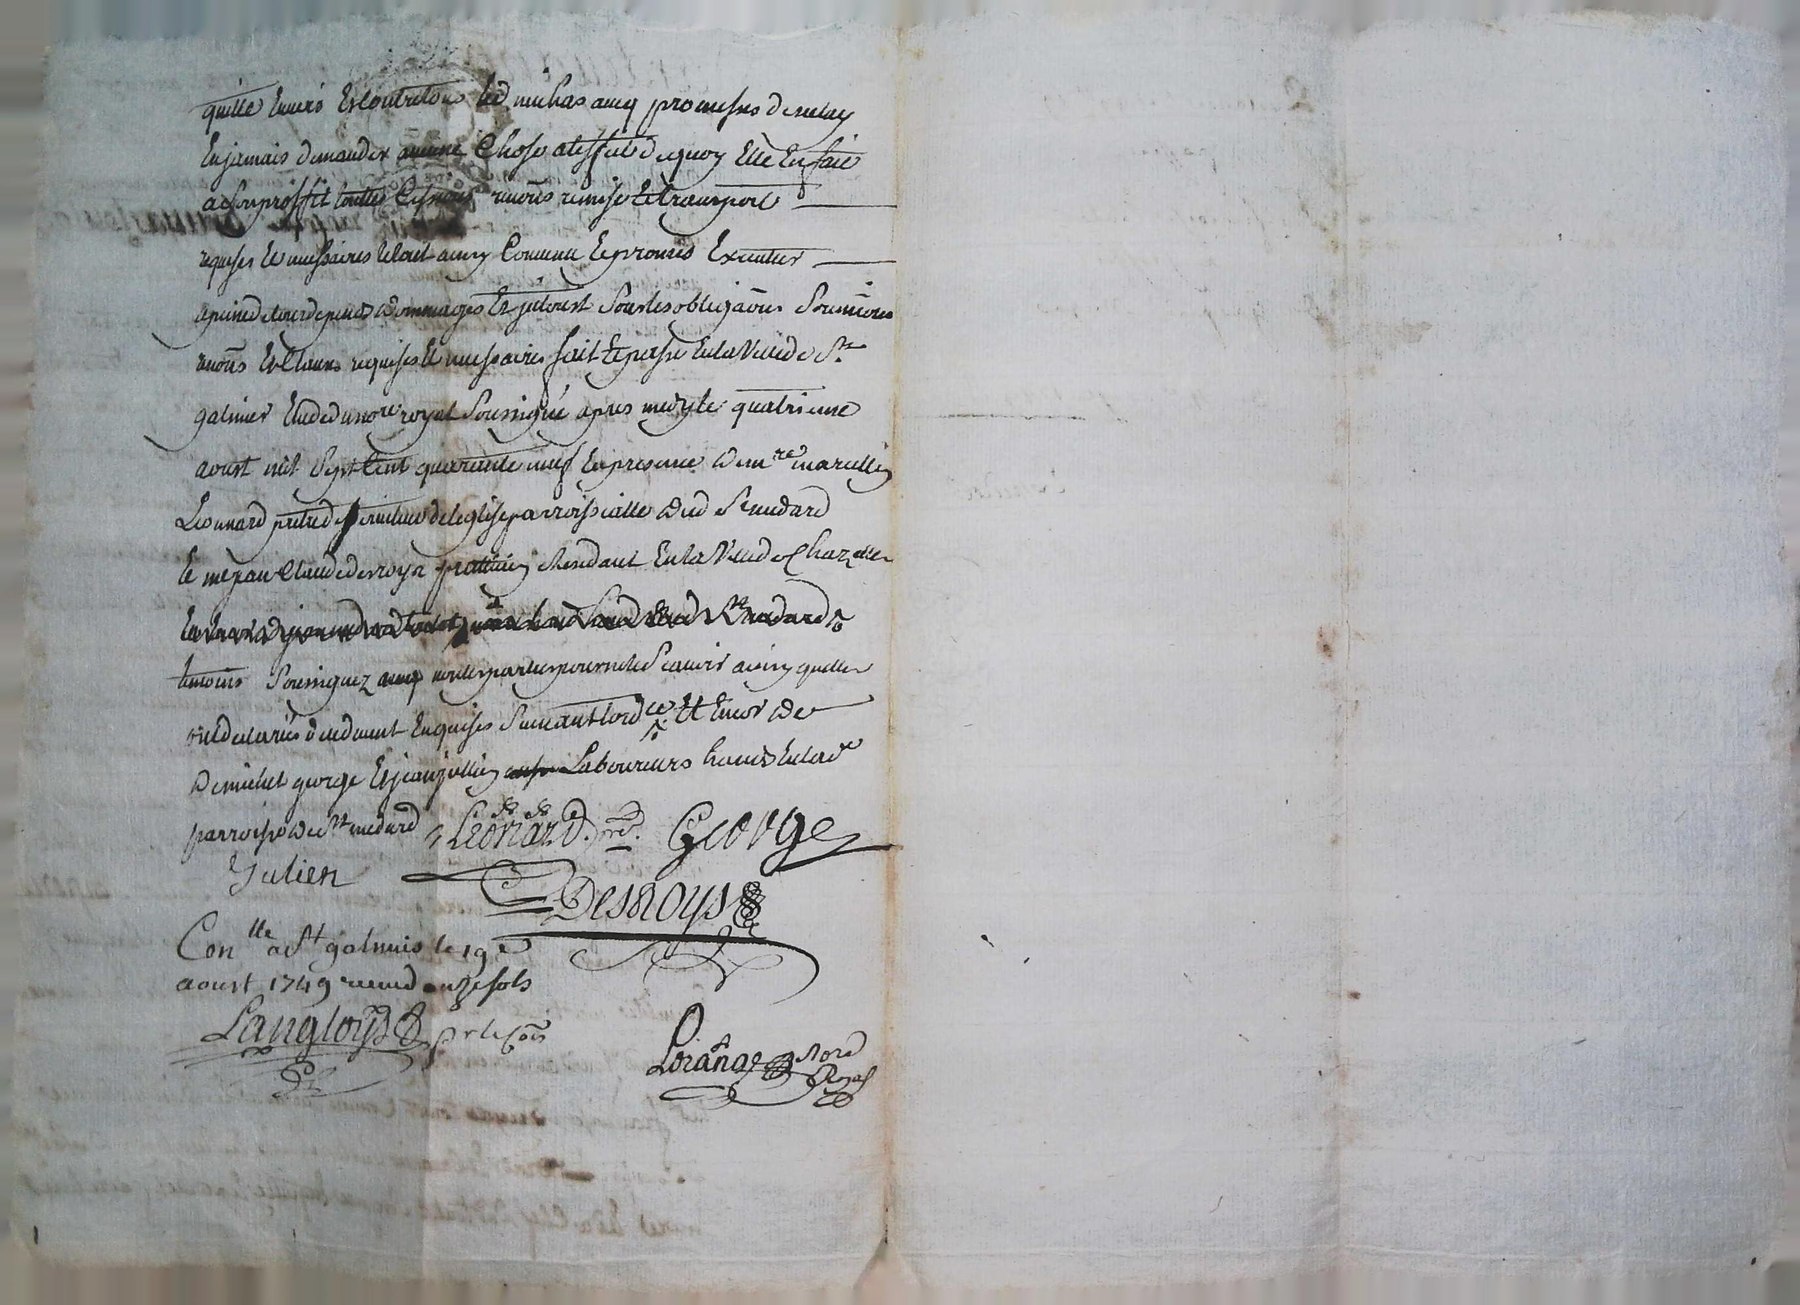 quitte Envers Et Contre tous led michas avec promesses de ne luy
En jamais demander aucune Chose a leffet de quoy Elle En fait
a son proffit touttes Cessions remise Et transport
requises Et necessaires Et tout ainsy Convenu Et promis Executer
a peine de tous depens dommages Et jnterest Sous les obligaons Soumions
Et Clauses requises Et necessaires fait Et passé En la Ville de St
galmier Etude du nore royal Soussigné apres midy le quatrieme
aoust mil Sept Cent quarante neuf En presence de mre marcellin
Leonnard pretre de l'eglise parroissialle dud St medard
Claude desroys praticien residant En la Ville de Chazelle
St medard
temoins Soussignez avec
Enquises Suivant lordce Et Encor de
de michel george Et jean jullien Laboureurs habts En lade
parroisse de St medard Leonard pre. George
Julien
Desroys
Conlle a St galmier le 19e
aoust 1749 receu onze sols
Langloys pr le Cois
Loranges Nore
Royal